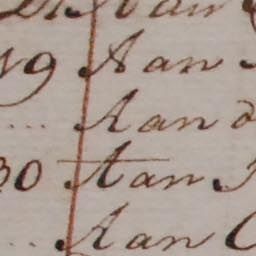 Aan
19 Aan
.... Aan d
30 Aan
... Aan C